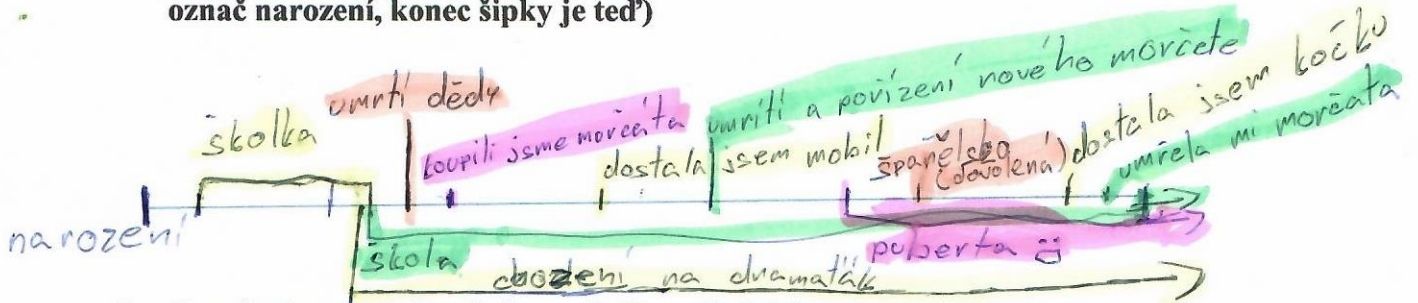 označ narození, konec šipky je teď)
narození
školka
umrtí dědy
koupili jsme morčáta
dostala jsem mobil
umrítí a pořízení nového morčete
španělsko
(dovolená)
dostala jsem kočku
umřela mi morčata
škola
puberta
chození na dramaťák